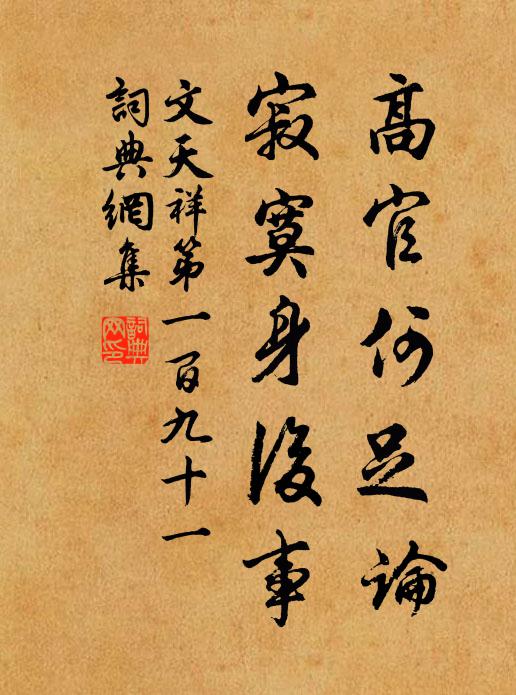 高官何足論
寂寞身後事
文天祥第一百九十一
詞典網集
詞典網印